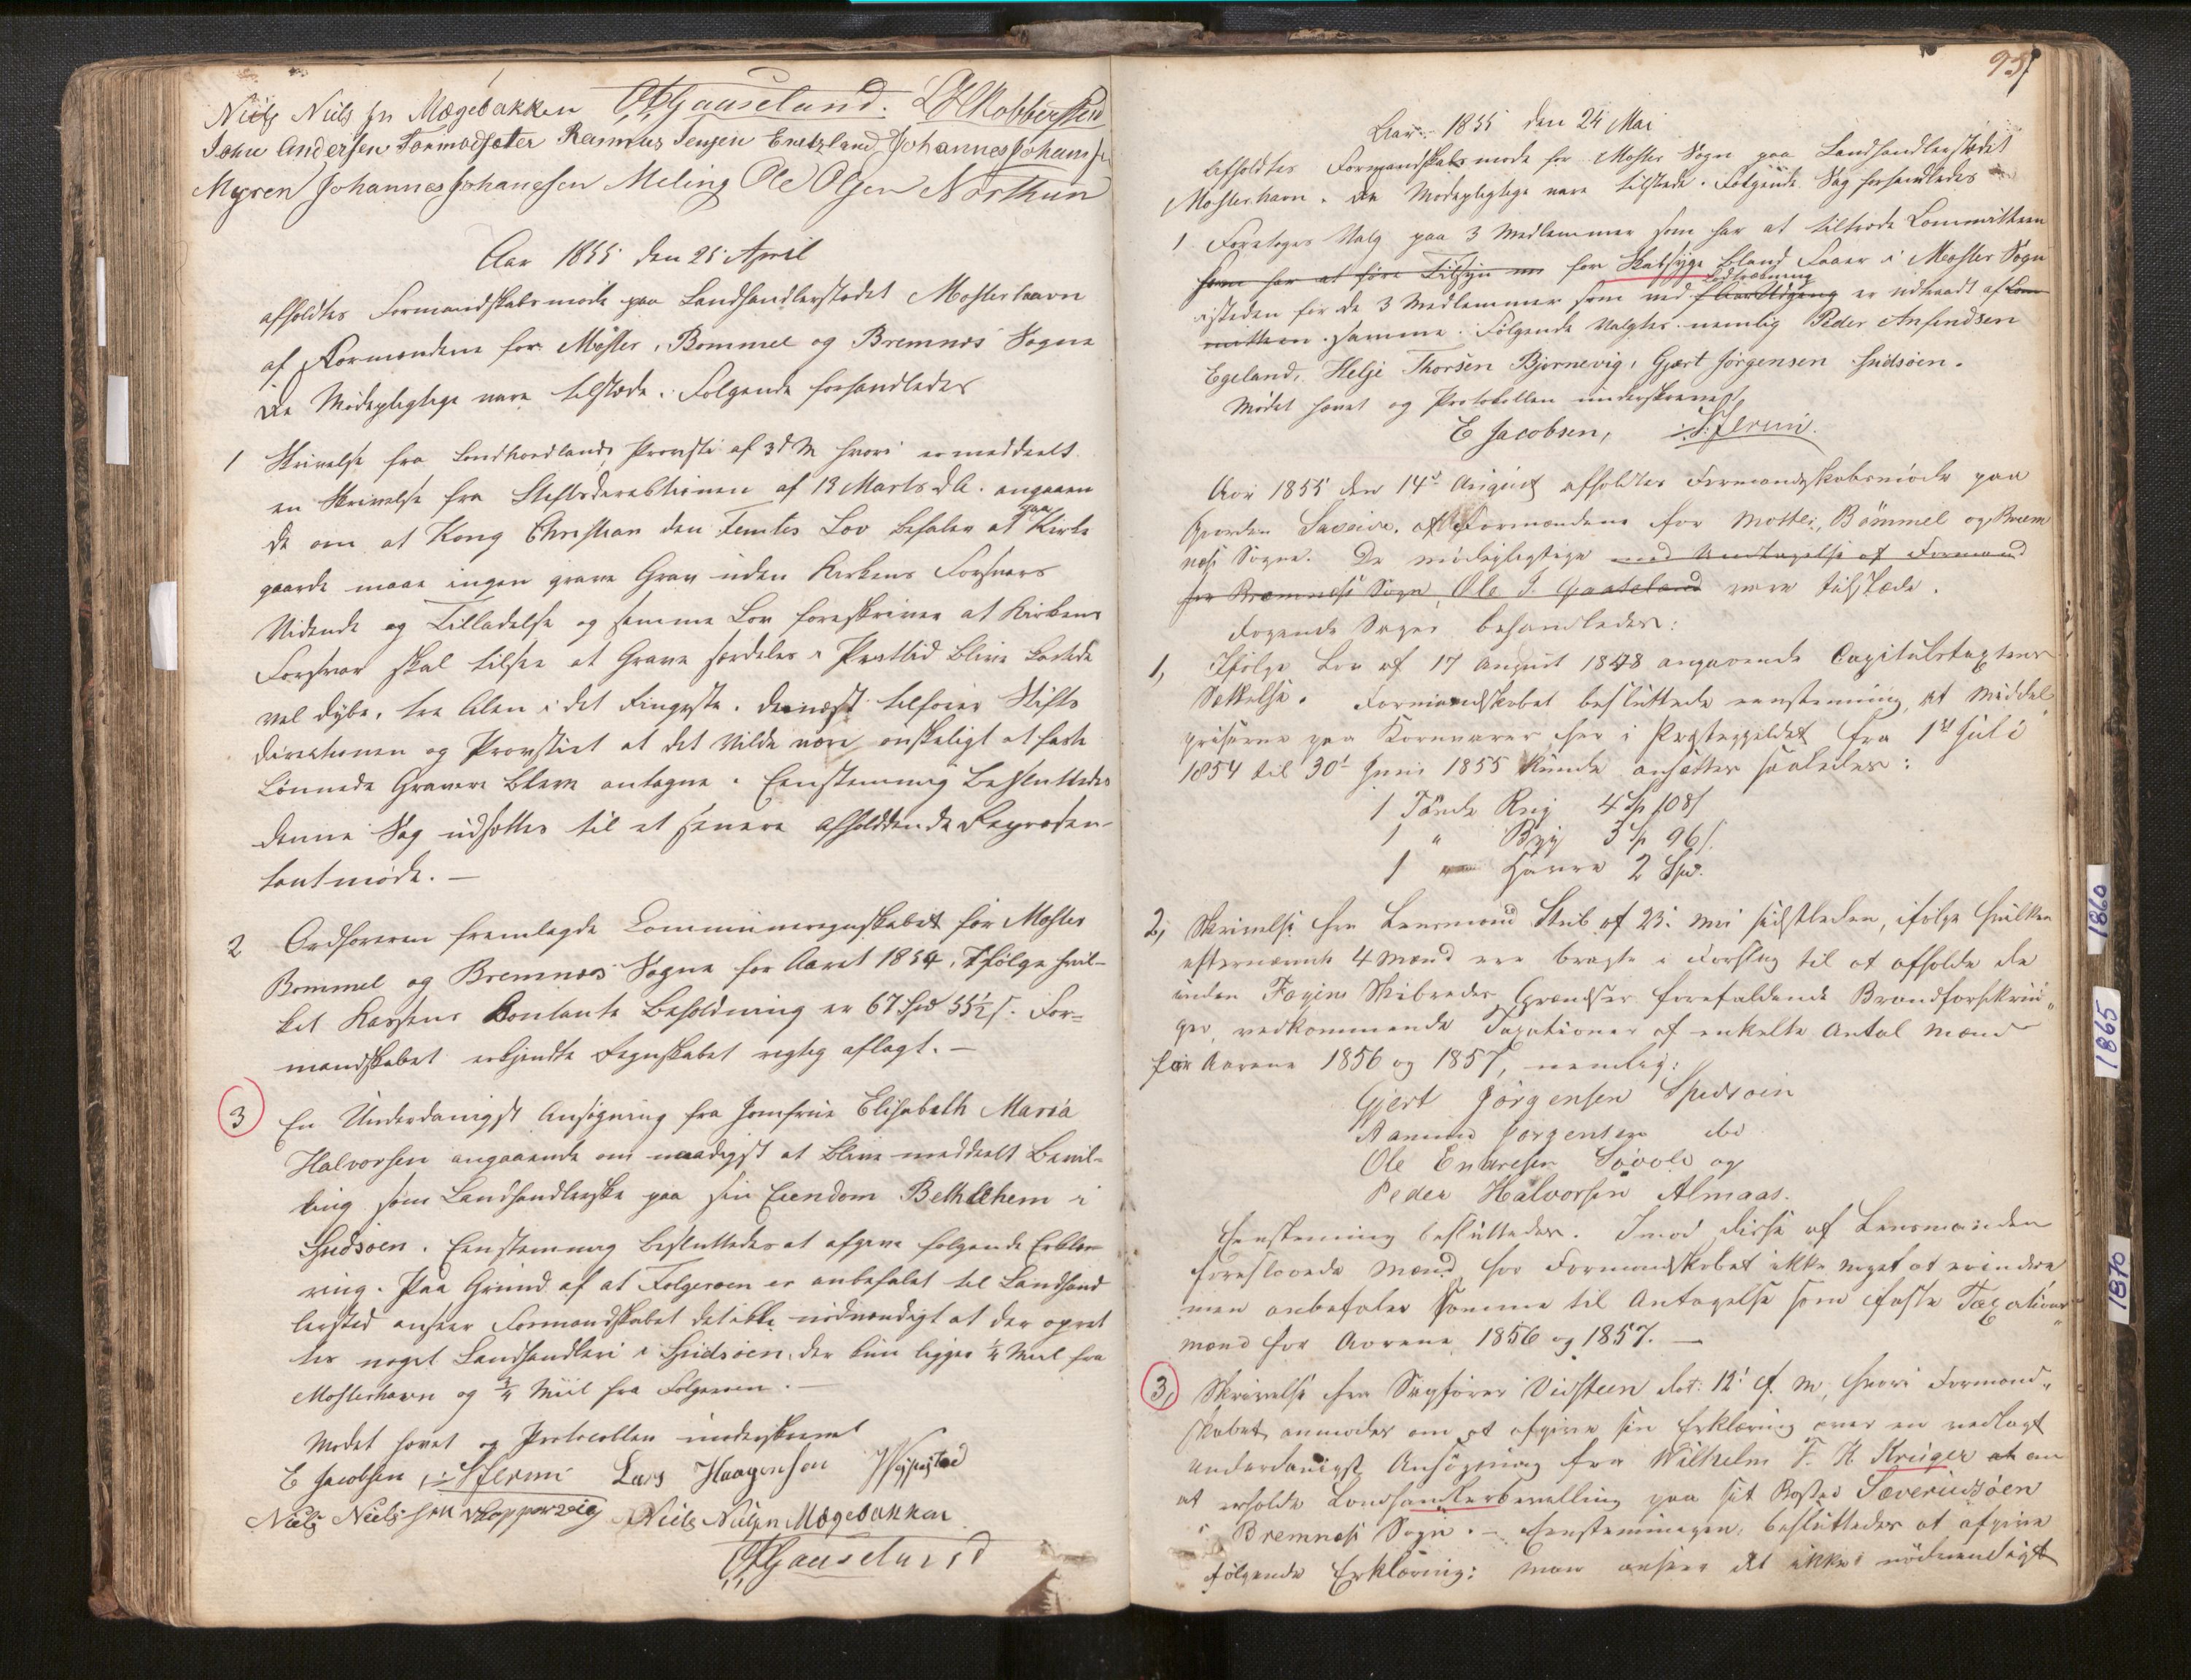 Niels Niels sn Mægebakken OGaaseland. LHRobbersten
John Andersen Formodsæter Rasmus Jensen Enetzland Johannes Johanss
Myren Johannes Johanesen Meling Ole Olsen Northun
Aar 1855 den 25 April
afholdtes Formandskabsmøde paa Landhandlerstedet Mosterhavn
af Formændene for Moster, Bømmel og Bremnæs Sogne
De Mødepligtige vare tilstæde. Følgende forhandledes
1 Skrivelse fra Søndhordlands Provsti af 3d M hvori er meddeelt
en Skrivelse fra Stiftsderektionen af 19 Marts d.A. angaaen
de om at Kong Christian den Femtes Lov befaler at paa Kirke
gaarde maae ingen grave Grav uden Kirkens Forsvars
Vidende og Tilladelse og samme Lov foreskriver at Kirkens
Forsvar skal tilsee at Grave særdeles i Pesttid blive kastede
vel dybe, tre Alen i det Ringeste. dernæst tilføier Stifts
derektionen og Provstiet at det vilde være ønskeligt at faste
lønnede Gravere bleve antagne. Eenstemmig besluttedes
denne Sag udsættes til et senere afholdende Repræsen-
tantmøde. –
2 Ordføreren fremlagde Communeregnskabet for Moster
Bømmel og Bremnæs Sogne for Aaret 1854. Ifølge hvil-
ket Kassens Contante Beholdning er 67 Spd 55½ s. For=
mandskabet erkjendte Regnskabet rigtig aflagt. –
3 En Underdanigst Ansøgning fra Jomfrue Elisabeth Maria
Halvorsen angaaende om naadigst at blive meddeelt Bevil-
ling som Landhandlerske paa sin Eiendom Bethlehem i
Spidsøen. Eenstemmig besluttedes at afgive følgende Erklæ-
ring. Paa Grund af at Folgerøen er anbefalet til Landhand
lersted anseer Formandskabet det ikke nødvendigt at der opret
tes noget Landhandleri i Spidsøen, der kun ligger ¼ Miil fra
Mosterhavn og ¾ Miil fra Folgerøen. –
Mødet hævet og Protocollen underskrevet
E Jacobsen, S Ferm Lars Haagensen
Niels Nielssen Kopperveig Niels Nielsen Mogebakken
OGaaseland
95
Aar 1855 den 24 Mai
Afholdtes Formandskabsmøde for Moster Sogn paa Landhandlerstedet
Mosterhavn. De Mødepligtige vare tilstede. Følgende Sag forhandledes
1 Foretoges Valg paa 3 Medlemmer som har at tiltræde Committeen
som har at føre Tilsyn for Skabsyge bland Faaer i Moster Sogn
Lodtrækning
isteden for de 3 Medlemmer som ved er udtraadt af Com
mitteen samme. Følgende valgtes nemlig Peder Anfindsen
Egeland, Helje Thorsen Bjørnevig, Gjert Jørgensen Spidsøen.
Mødet hævet og Protokollen underskrevet
E Jacobsen, S. Ferm.
Aar 1855 den 14de August afholdtes Formandskabsmøde paa
Gaarden af Formændene for Moster, Bömmel og Brem
næs Sogne. De mødepligtige med Undtagelse af Formand
for Bremnæs Sogn, Ole J. Gaaseland vare tilstæde.
Følgende Sager behandledes:
1, Ifølge Lov af 17 August 1848 angaaende Capitelstaxtens
Sættelse. Formandskabet besluttede eenstemmig, at Middel
priserne paa Kornvarer her i Præstegjeldet fra 1st Juli
1854 til 30t Juni 1855 kunde ansættes saaledes:
1 Tönde Rug 4 Sp 108 s
1 " Byg 3 Sp 96 s.
1 " Havre 2 Spd.
2, Skrivelse fra Lensmand Stub af 23. Mai sidstleden, ifølge hvilken
efternævnte 4 Mænd ere bragte i Forslag til at afholde de
inden Føyens Skibredes Grændser forefaldende Brandforsikrin„
ger vedkommende Taxationer af enkelte Antal Mænd
for Aarene 1856 og 1857, nemlig:
Gjert Jörgensen Spidsøin
Aamund Jørgensen do
Ole Enaresen Søvold og
Peder Halvorsen Almaas.
Eenstemmig besluttedes. Imod disse af Lensmanden
foreslaaede Mænd har Formandskabet ikke noget at erindre
men anbefaler samme til Antagelse som faste Taxations„
mænd for Aarene 1856 og 1857. –
3, Skrivelse fra Sagfører Vidsteen dat: 12t d. M, hvori Formand„
skabet anmodes om at afgive sin Erklæring over en vedlagt
underdanigst Ansøgning fra Wilhelm F. K Krüger at om
at erholde Landhandlerbevilling paa sit Bosted Sæverudsøen
i Bremnæs Sogn. – Eenstemmigen besluttedes at afgive
følgende Erklæring: Man anseer det ikke nødvendigt
1860
1865
1870